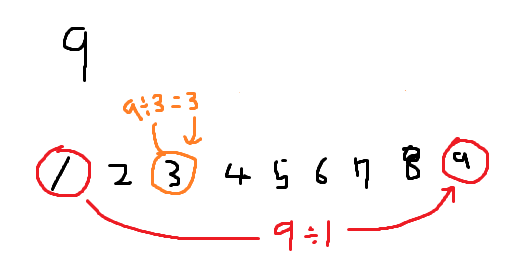 9
9÷3=3
1 2 3 4 5 6 7 8 9
9÷1